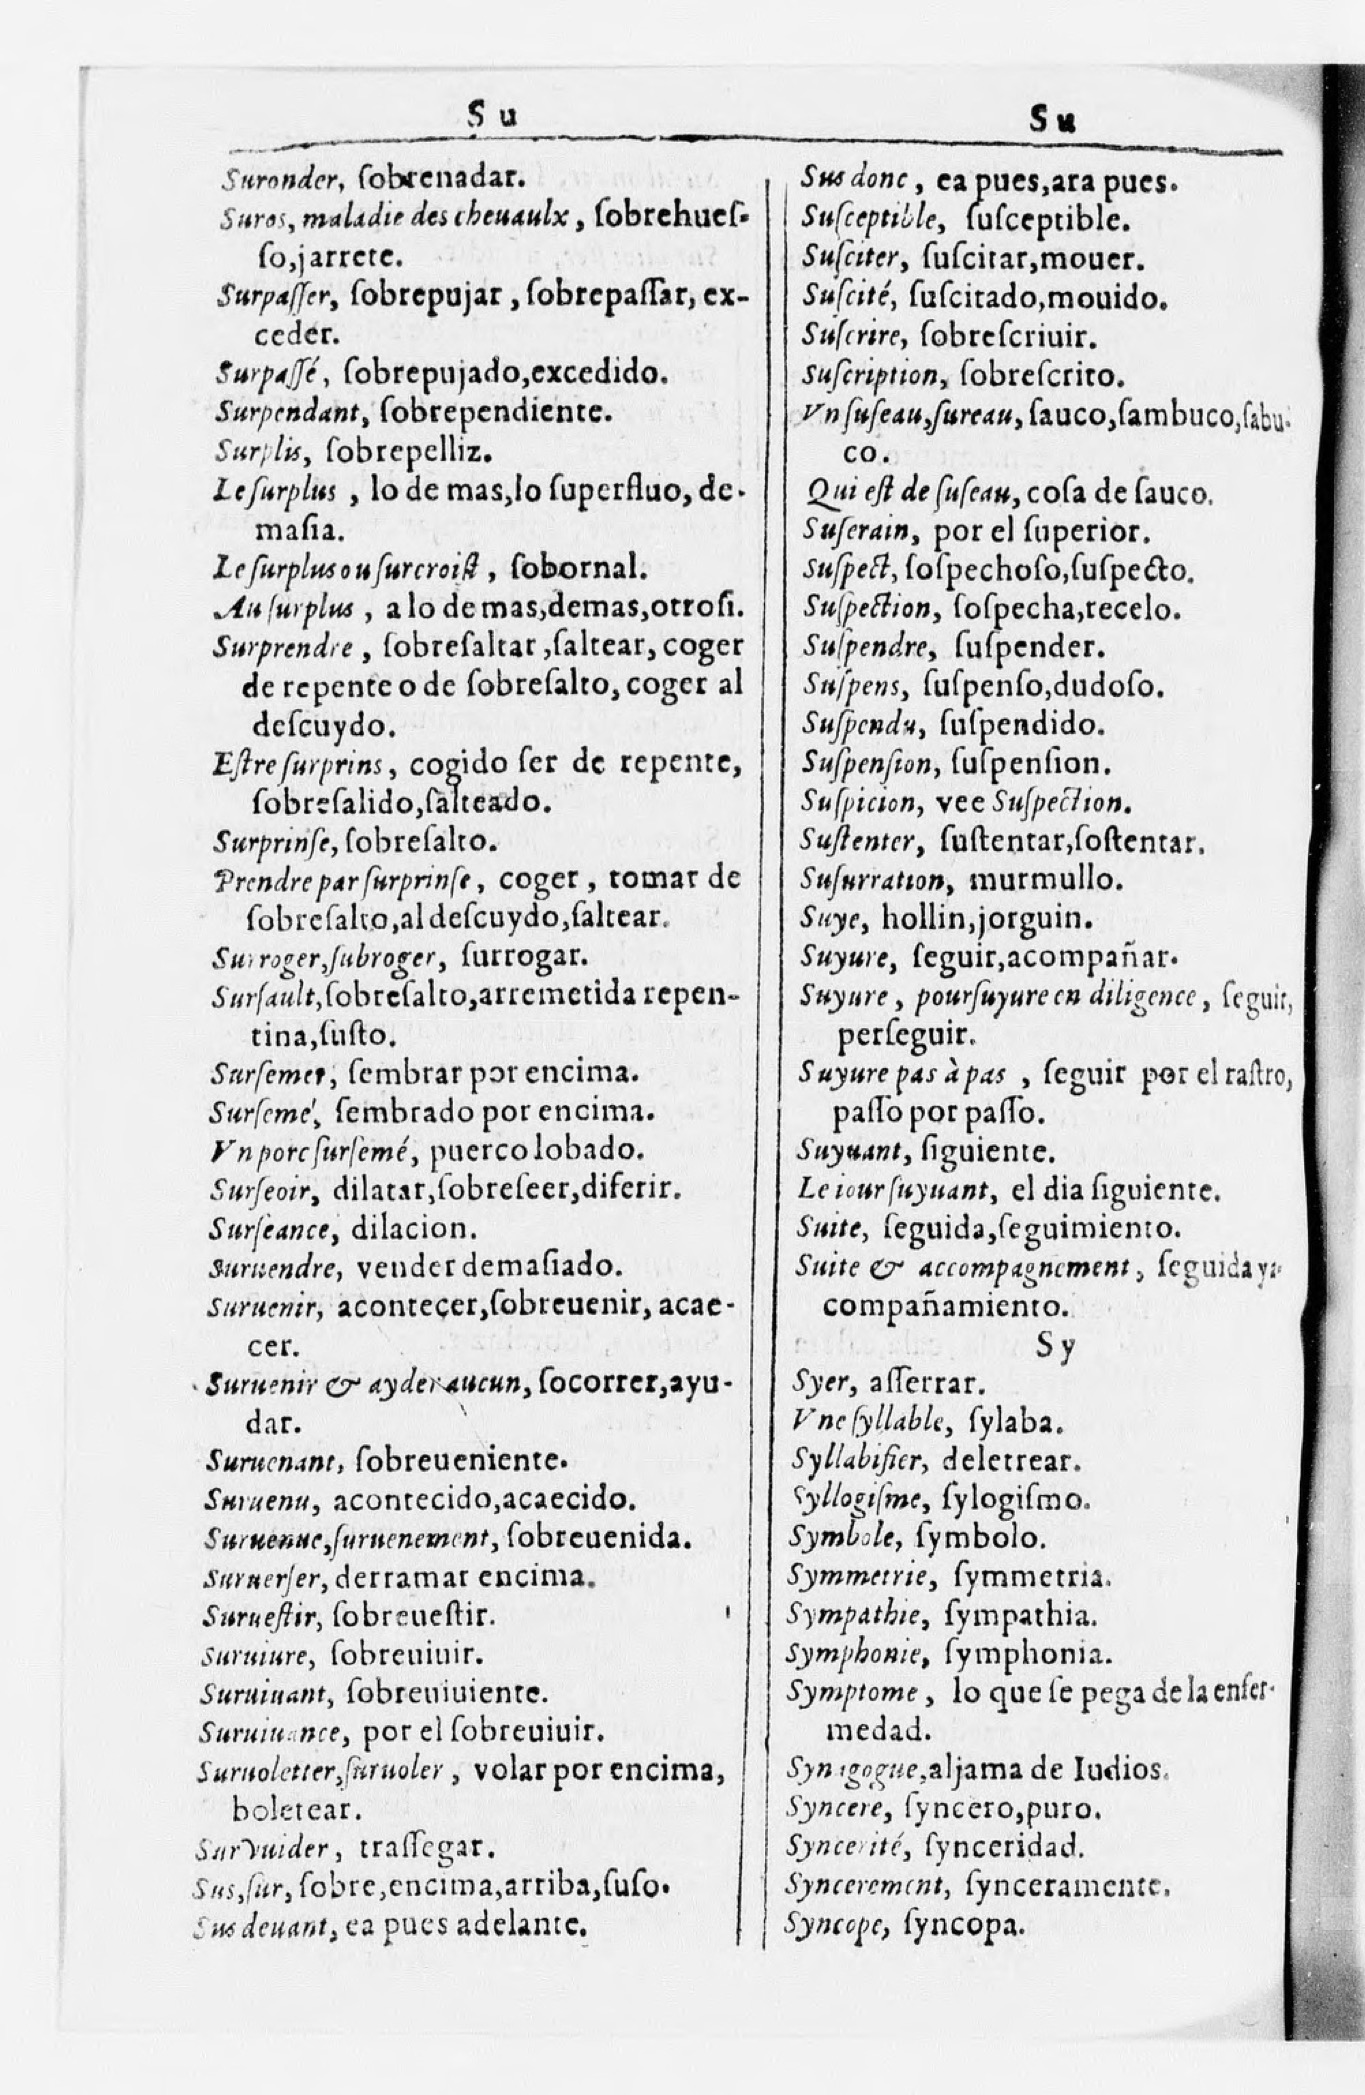 Su
Suronder, ſobrenadar.
Suros, maladie des cheuaulx, ſobrehueſ-
ſo, jarrete.
Surpaſſer, ſobrepujar, ſobrepaſſar, ex-
ceder.
Surpaſſé, ſobrepujado, excedido.
Surpendant, ſobrependiente.
Surplis, ſobrepelliz.
Le ſurplus, lo de mas, lo ſuperfluo, de-
maſia.
Le ſurplus ou ſurcroiſt, ſobornal.
Au ſurplus, a lo de mas, demas, otroſi.
Surprendre, ſobreſaltar, ſaltear, coger
de repente o de ſobreſalto, coger al
deſcuydo.
Eſtre ſurprins, cogido ſer de repente,
ſobreſalido, ſalteado.
Surprinſe, ſobreſalto.
Prendre par ſurprinſe, coger, tomar de
ſobreſalto, al deſcuydo, ſaltear.
Surroger, ſubroger, ſurrogar.
Surſault, ſobreſalto, arremetida repen-
tina, ſuſto.
Surſemer, ſembrar por encima.
Surſemé, ſembrado por encima.
Vn porc ſurſemé, puerco lobado.
Surſeoir, dilatar, ſobreſeer, diferir.
Surſeance, dilacion.
Suruendre, vender demaſiado.
Suruenir, acontecer, ſobreuenir, acae-
cer.
Suruenir & ayder aucun, ſocorrer, ayu-
dar.
Suruenant, ſobreueniente.
Suruenu, acontecido, acaecido.
Suruenue, ſuruenement, ſobreuenida.
Suruerſer, derramar encima.
Surueſtir, ſobreueſtir.
Suruiure, ſobreuiuir.
Suruiuant, ſobreuiuiente.
Suruiuance, por el ſobreuiuir.
Suruoletter, ſuruoler, volar por encima,
boletear.
Survuider, traſſegar.
Sus, ſur, ſobre, encima, arriba, ſuſo.
Sus deuant, ea pues adelante.
Su
Sus donc, ea pues, ara pues.
Suſceptible, ſuſceptible.
Suſciter, ſuſcitar, mouer.
Suſcité, ſuſcitado, mouido.
Suſcrire, ſobreſcriuir.
Suſcription, ſobreſcrito.
Vn ſuſeau, ſureau, ſauco, ſambuco, ſabu-
co.
Qui eſt de ſuſeau, coſa de ſauco.
Suſerain, por el ſuperior.
Suſpect, ſoſpechoſo, ſuſpecto.
Suſpection, ſoſpecha, recelo.
Suſpendre, ſuſpender.
Suſpens, ſuſpenſo, dudoſo.
Suſpendu, ſuſpendido.
Suſpenſion, ſuſpenſion.
Suſpicion, vee Suſpection.
Suſtenter, ſuſtentar, ſoſtentar.
Suſurration, murmullo.
Suye, hollin, jorguin.
Suyure, ſeguir, acompañar.
Suyure, pourſuyure en diligence, ſeguir,
perſeguir.
Suyure pas à pas, ſeguir por el raſtro,
paſſo por paſſo.
Suyuant, ſiguiente.
Le iour ſuyuant, el dia ſiguiente.
Suite, ſeguida, ſeguimiento.
Suite & accompagnement, ſeguida y
compañamiento.
Sy
Syer, aſſerrar.
Vne ſyllable, ſylaba.
Syllabifier, deletrear.
Syllogiſme, ſylogiſmo.
Symbole, ſymbolo.
Symmetrie, ſymmetria.
Sympathie, ſympathia.
Symphonie, ſymphonia.
Symptome, lo que ſe pega de la enfer-
medad.
Synagogue, aljama de Iudios.
Syncere, ſyncero, puro.
Syncerité, ſynceridad.
Syncerement, ſynceramente.
Syncope, ſyncopa.